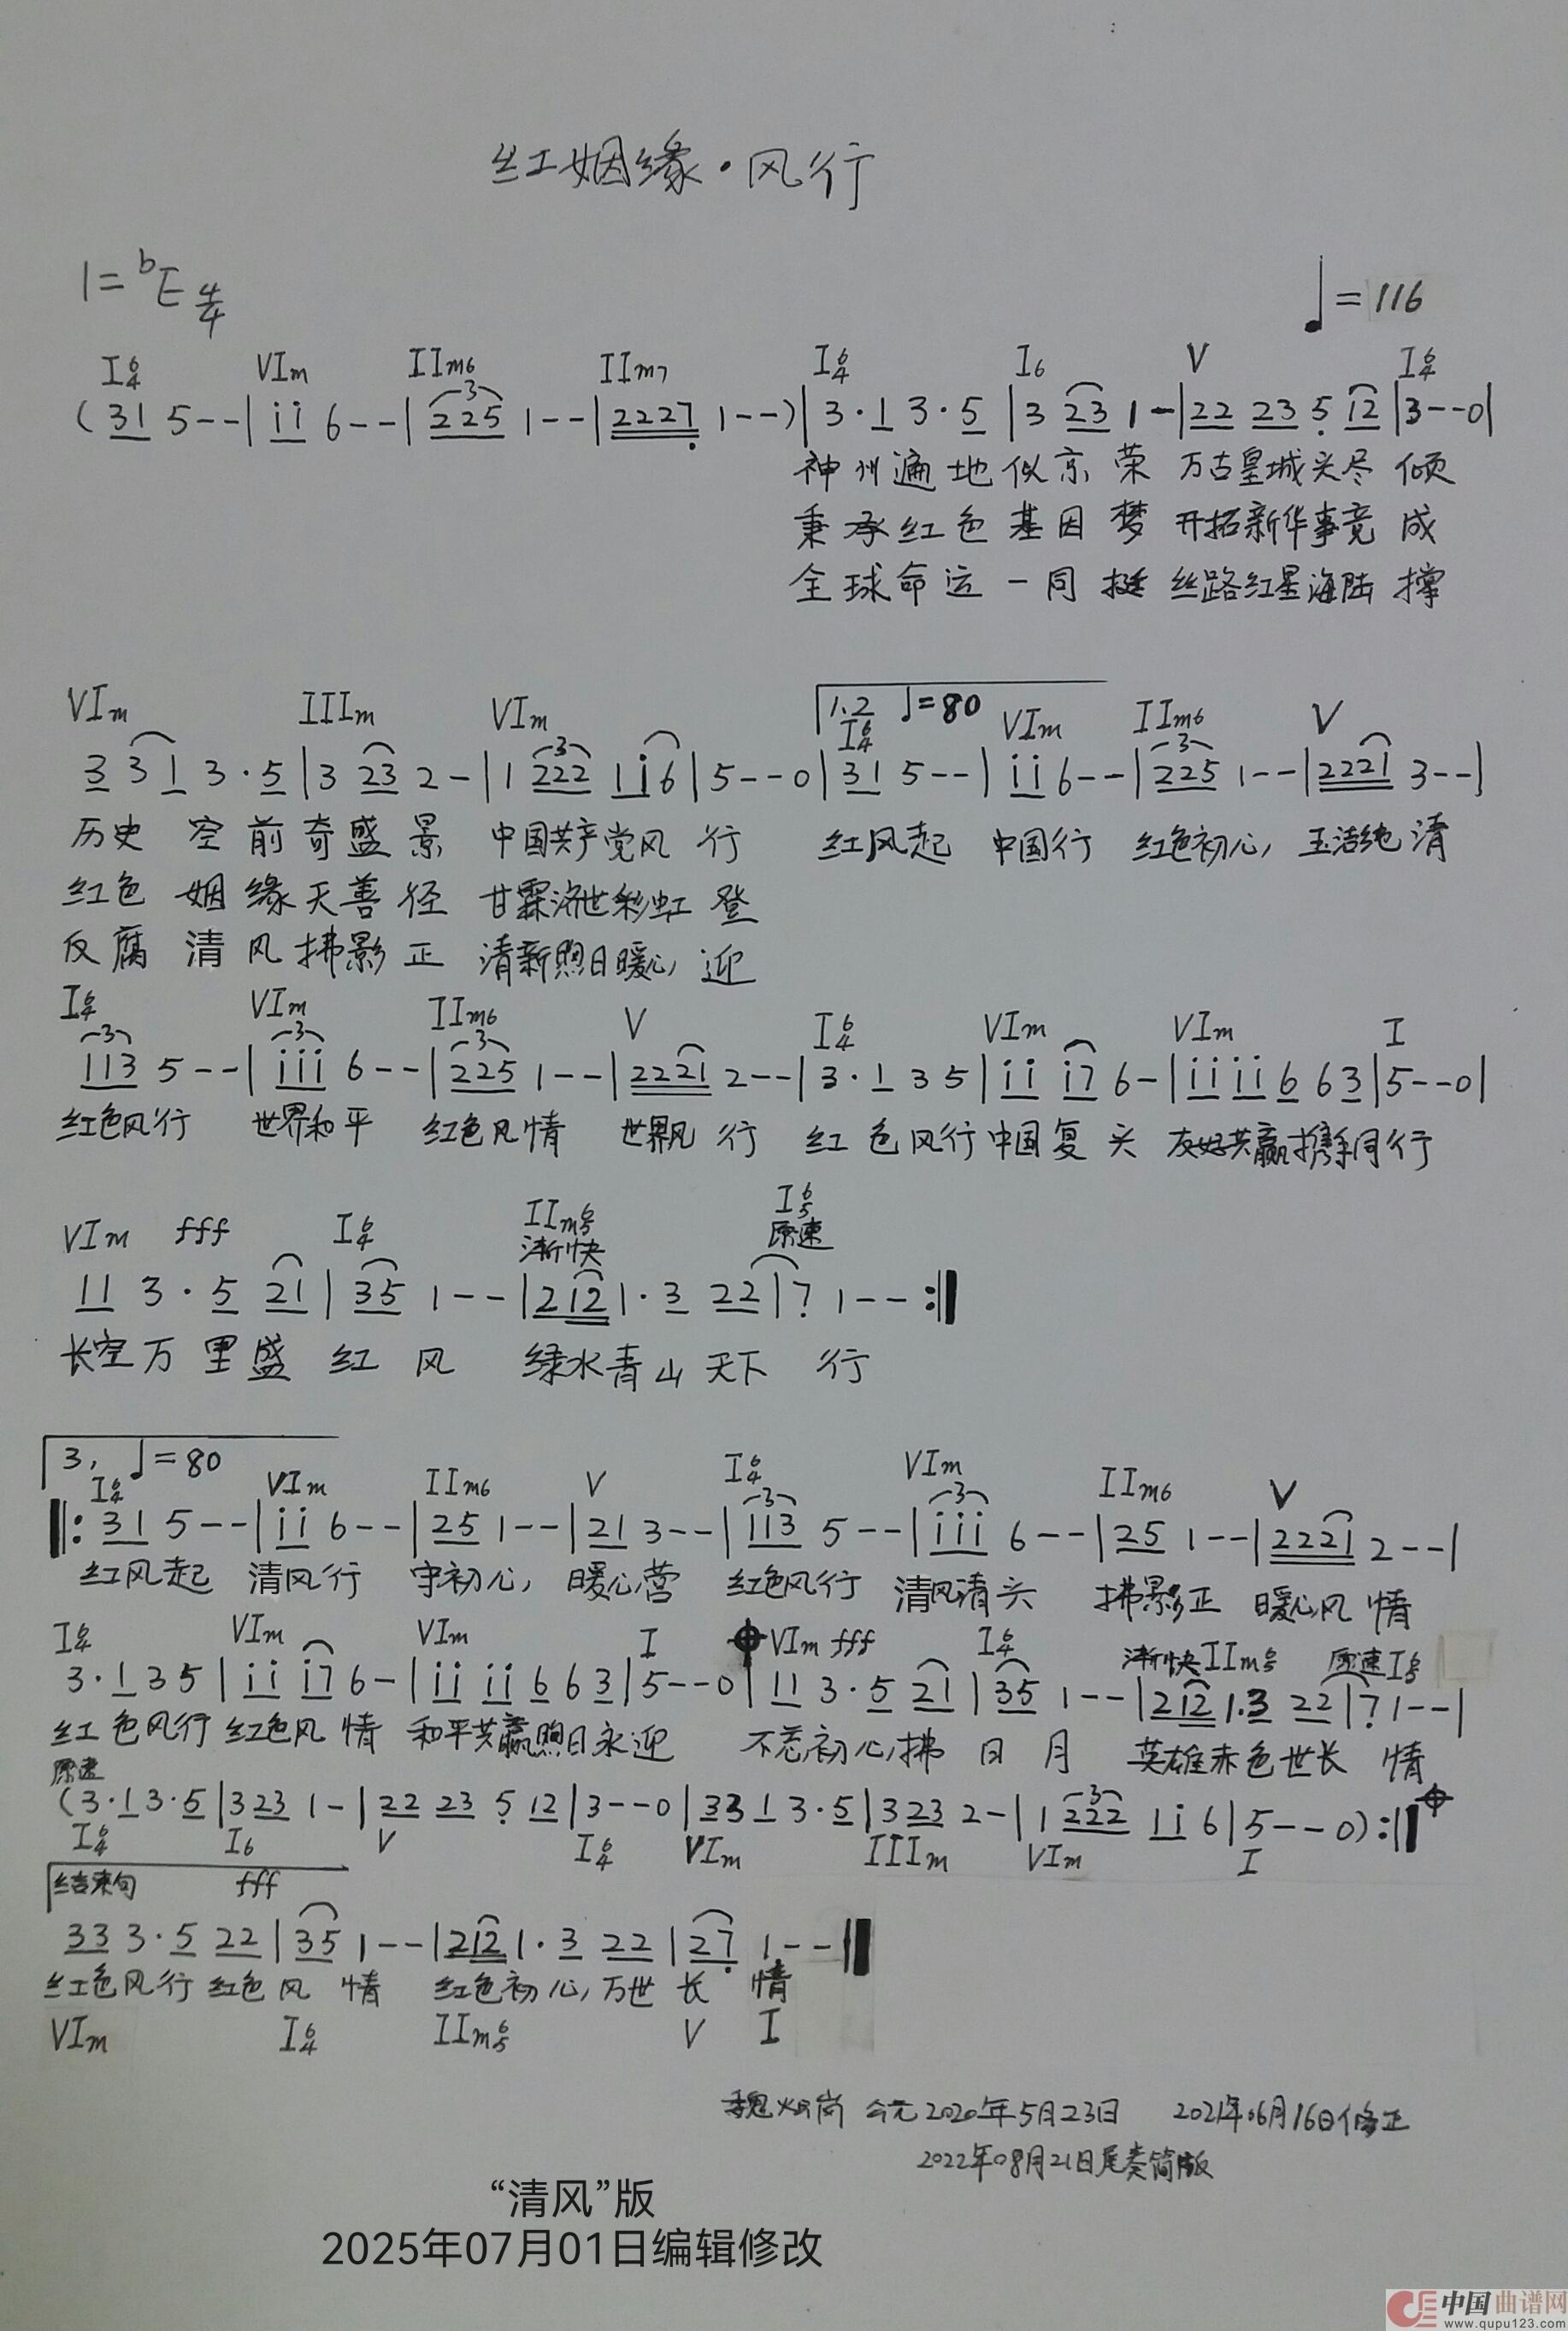 红姻缘·风行
1=bE 4/4
♩=116
I64 VIm IIm6 IIm7 I64 I6 V I64
(31 5--|ii 6--|225 1--|2227 1--)|3·1 3·5|3 23 1-|22 23 5 12|3--0|
神州遍地似京荣 万古皇城头尽倾
秉承红色基因梦 开拓新华事竟成
全球命运一同挺 丝路红星海陆撑
VIm IIIm VIm 1.2 ♩=80 I64 VIm IIm6 V
3 3 1 3·5|3 23 2-|1 222 1i6|5--0|31 5--|ii 6--|225 1--|2221 3--|
历史空前奇盛景 中国共产党风行 红风起 中国行 红色初心 玉洁纯清
红色姻缘天善径 甘霖济世彩虹登
反腐清风拂影正 清新煦日暖心迎
I64 VIm IIm6 V I64 VIm VIm I
113 5--|iii 6--|225 1--|2221 2--|3·1 3 5|ii i7 6-|ii ii 6 6 3|5--0|
红色风行 世界和平 红色风情 世界风行 红色风行中国复兴 友好共赢携手同行
VIm fff I64 IIm65 渐快 I65 原速
11 3·5 21|35 1--|212 1·3 22|7 1--:|
长空万里盛红风 绿水青山天下行
3, ♩=80
I64 VIm IIm6 V I64 VIm IIm6 V
|:31 5--|ii 6--|25 1--|21 3--|113 5--|iii 6--|25 1--|2221 2--|
红风起 清风行 守初心 暖心营 红色风行 清风清头 拂影正 暖心风情
I64 VIm VIm I VIm fff I64 渐快IIm65 原速I65
3·1 3 5|ii i7 6-|ii ii 6 6 3|5--0|11 3·5 21|35 1--|212 1.3 22|7 1--|
红色风行 红色风情 和平共赢煦日永迎 不忘初心拂日月 英雄赤色世长情
原速
(3·1 3·5|3 23 1-|22 23 5 12|3--0|33 1 3·5|3 23 2-|1 222 1i 6|5--0):|
I64 I6 V I64 VIm IIIm VIm I
结束句 fff
33 3·5 22|35 1--|212 1·3 22|27 1--|
红色风行红色风情 红色初心万世长情
VIm I64 IIm65 V I
公元2020年5月23日 2021年06月16日修正
2022年08月21日尾奏简版
“清风”版
2025年07月01日编辑修改
中国曲谱网
www.qupu123.com